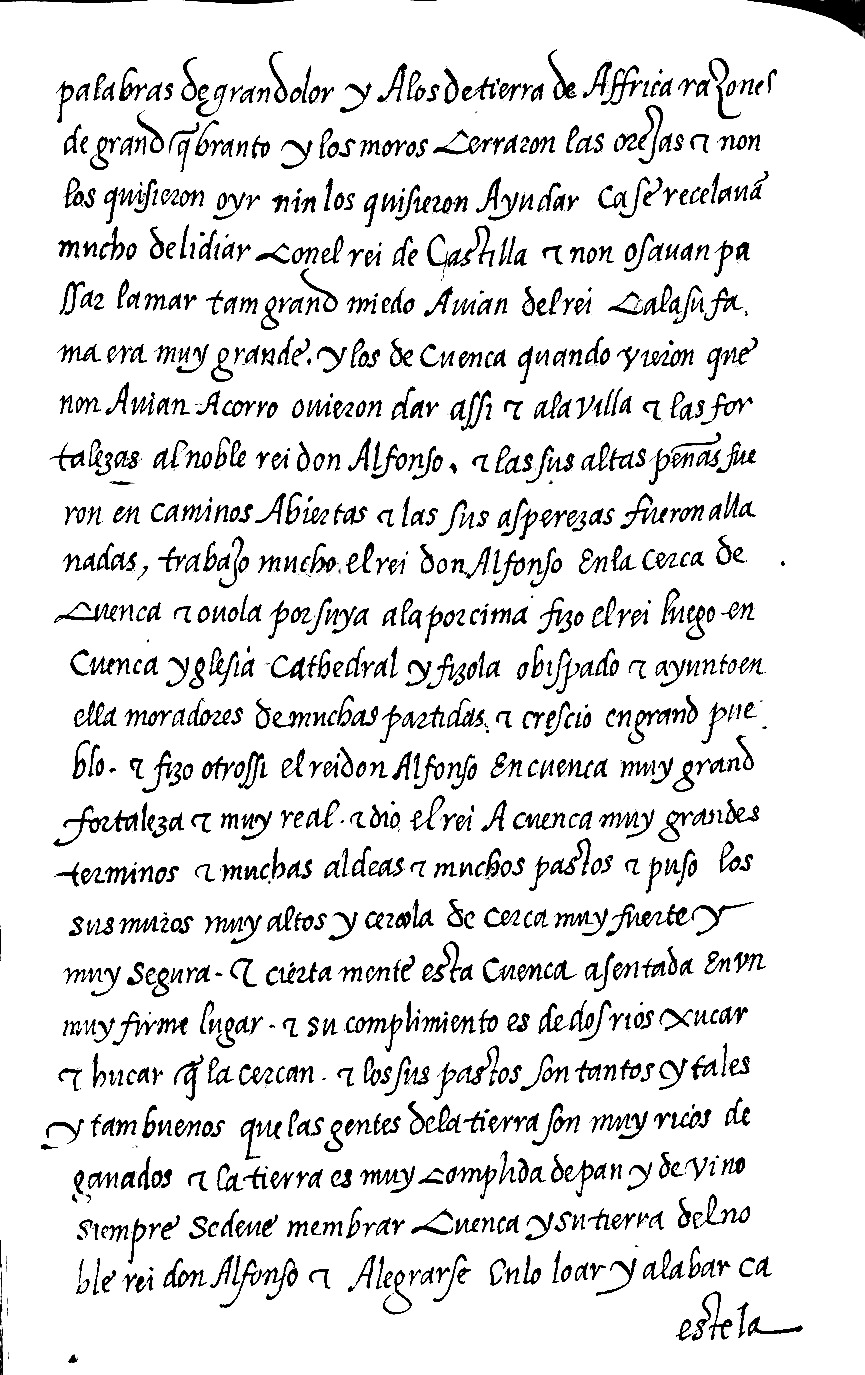 palabras de gran dolor y Alos de tierra de Affrica razones
de grand q̃branto y los moros Cerraron las orejas ⁊ non
los quisieron oyr nin los quisieron Ayudar Ca se recelauã
mucho de lidiar Con el rei de Castilla ⁊ non osauan pa
ssar la mar tam grand miedo Auian del rei Ca la su fa
ma era muy grande. y los de Cuenca quando vieron que
non Auian Acorro ouieron dar assi ⁊ ala villa ⁊ las for
talezas al noble rei don Alfonso. ⁊ las sus altas peñas fue
ron en caminos Abiertas ⁊ las sus asperezas fueron alla
nadas, trabajo mucho el rei don Alfonso En la cerca de
Cuenca ⁊ ouola por suya ala por cima fizo el rei luego en
Cuenca yglesia Cathedral y fizola obispado ⁊ ayunto en
ella moradores de muchas partidas. ⁊ crescio en grand pue
blo. ⁊ fizo otrossi el rei don Alfonso En cuenca muy grand
fortaleza ⁊ muy real. ⁊ dio el rei A cuenca muy grandes
terminos ⁊ muchas aldeas ⁊ muchos pastos ⁊ puso los
sus muros muy altos y cercola de cerca muy fuerte y
muy segura. ⁊ cierta mente esta Cuenca asentada En vn
muy firme lugar. ⁊ su complimiento es de dos rios Xucar
⁊ hucar q̃ la cercan. ⁊ los sus pastos son tantos y tales
y tam buenos que las gentes dela tierra son muy ricos de
ganados ⁊ la tierra es muy Complida de pan y de vino
siempre se deue membrar Cuenca y su tierra del no
ble rei don Alfonso ⁊ Alegrarse En lo loar y alabar ca
estela